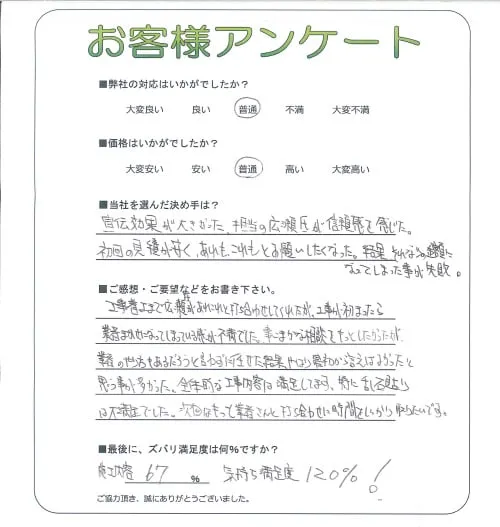 お客様アンケート
■弊社の対応はいかがでしたか？
大変良い 良い 普通 不満 大変不満
■価格はいかがでしたか？
大変安い 安い 普通 高い 大変高い
■当社を選んだ決め手は？
宣伝効果が大きかった、担当の広瀬氏が信頼感を感じた。
初回の見積が甘く、あれもこれもとお願いしたくなった。結果
なってしまった事が失敗。
■ご感想・ご要望などをお書き下さい。
工事着工まで広瀬氏があれこれと打ち合わせしてくれたが、工事が初まったら
業者まかせになってしまっている感が不満でした。事こまかな相談をもっとしたかったが
業者のやり方もあるだろうと言わずに任せた結果、やはり最初から言えばよかったと
思う事が多かった。全体的な工事内容は満足してます。特に乱石貼り
は大満足でした。次回はもっと業者さんと打ち合わせに時間をしっかり取りたいです。
■最後に、ズバリ満足度は何%ですか？
施工内容 67 % 気持ち満足度 120%!
ご協力頂き、誠にありがとうございました。